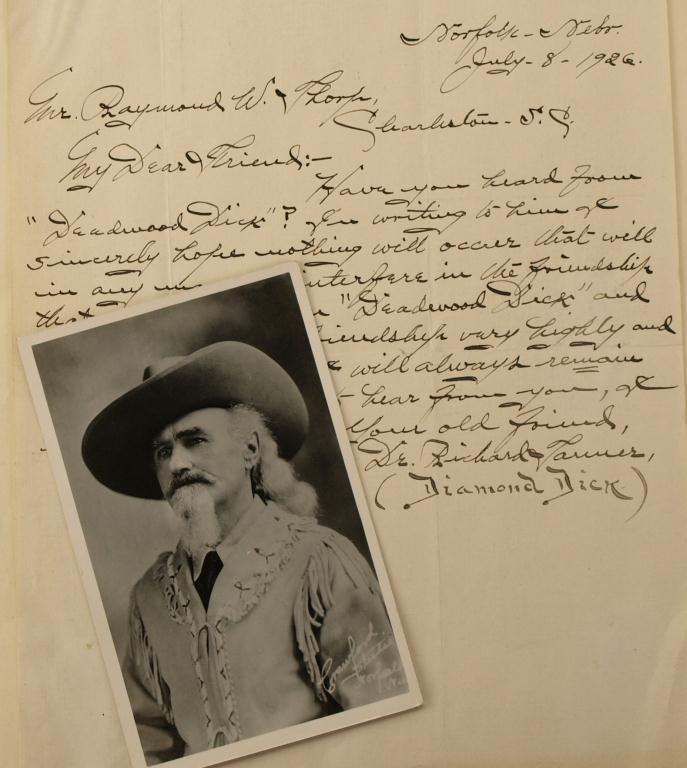 Norfolk - Nebr.
July - 8 - 1926.
Mr. Raymond W. Thorp,
Charleston - S. C.
My Dear Friend:-
Have you heard from
"Deadwood Dick"? In writing to him I
sincerely hope nothing will occur that will
in any interfere in the friendship
that "Deadwood Dick" and
friendship very highly and
will always remain
hear from you, I
Your old friend,
Dr. Richard Tanner,
(Diamond Dick)
Crawford
Norfolk